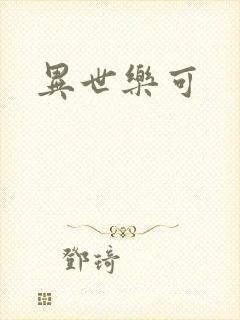 異世樂可
鄧琦